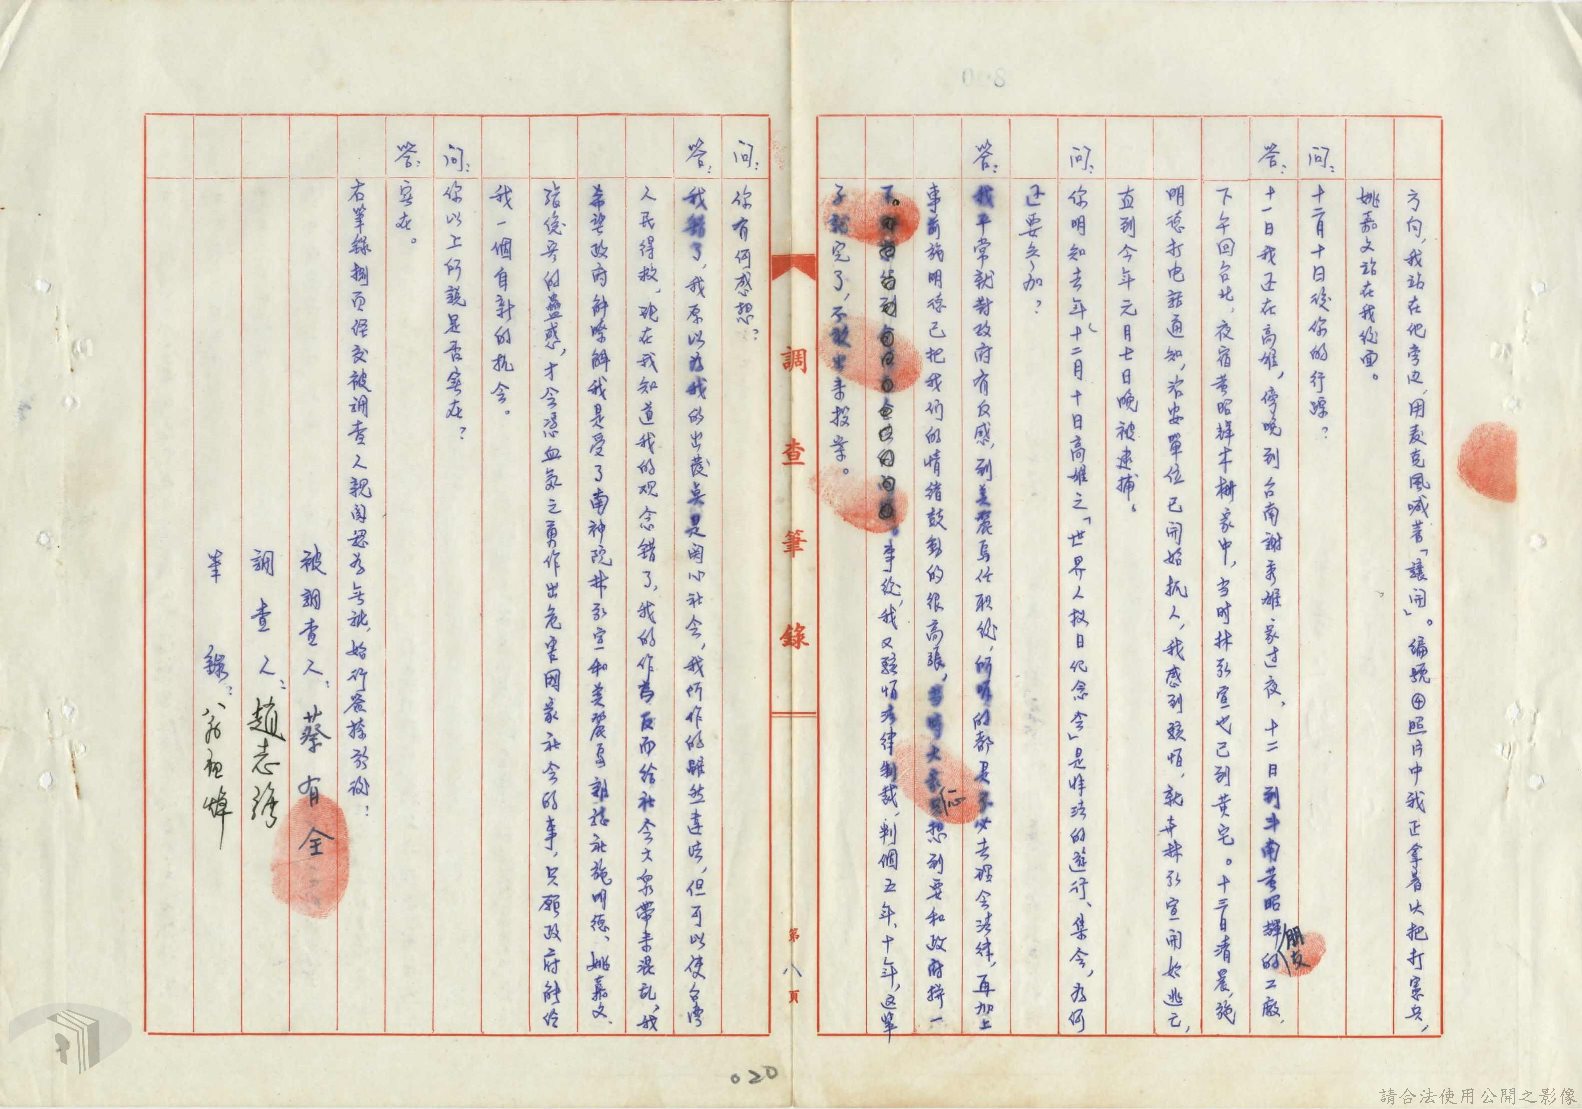 方向，我站在他旁边，用麦克風喊著「讓開」。編號④照片中我正拿着火把打憲兵，
姚嘉文站在我後面。
問：十二月十日後你的行踪？
答：十一日我还在高雄，傍晚到台南謝秀雄家过夜，十二日到斗南黃昭輝的朋友工廠，
下午回台北，夜宿黃昭輝木柵家中，当时林弘宣也已到黃宅。十三日清晨，施
明德打电話通知，治安單位已開始抓人，我感到駭怕，就与林弘宣開始逃亡，
直到今年元月七日晚被逮捕。
問：你明知去年十二月十日高雄之「世界人权日紀念会」是非法的遊行、集会，為何
还要参加？
答：我平常就對政府有反感，到美麗島任职後，所听的都是不必去理会法律，再加上
事前施明德已把我们的情绪鼓動的很高張，当時大家只想到要和政府拼一
下。事後，我又駭怕法律制裁，判個五年、十年，这輩
子就完了，不敢出来投案。
調查筆錄
第八頁
問：你有何感想？
答：我錯了，我原以為我的出發点是関心社会，我所作的雖然違法，但可以使台湾
人民得救，現在我知道我的观念錯了，我的作為反而給社会大眾带来混乱，我
希望政府能瞭解我是受了南神院林弘宣和美麗島雜誌社施明德、姚嘉文、
張俊宏的蠱惑，才会憑血氣之勇作出危害國家社会的事，只願政府能给
我一個自新的机会。
問：你以上所說是否实在？
答：实在。
右筆錄捌頁経交被調查人親閱認為無訛，始行簽捺於後：
被調查人：蔡有全
調查人：趙志強
筆錄：
020
請合法使用公開之影像